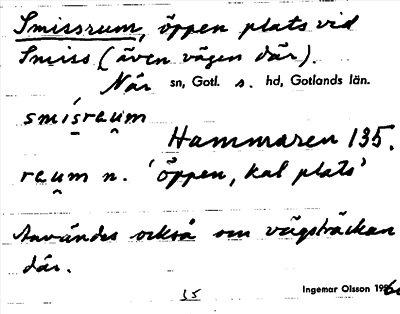 Smissrum, öppen plats vid
Smiss (även vägen där).
När sn, Gotl. s. hd, Gotlands län.
smísrau̯m
Hammaren 135.
rau̯m n. 'öppen, kal plats'
Användes också om vägsträckan
där.
35
Ingemar Olsson